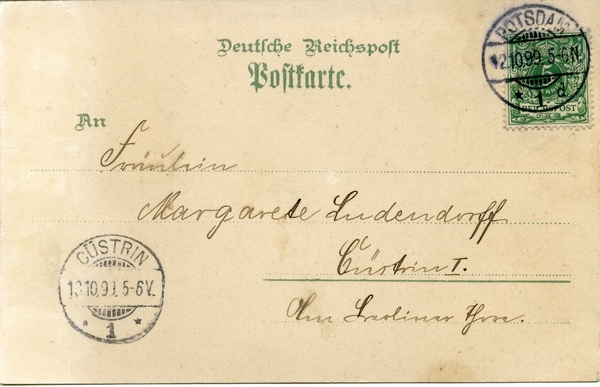 Deutsche Reichspost
Postkarte.
POTSDAM
12.10.99. 5-6N.
* 1 d
REICHSPOST
An
Fräulein
Margarete Ludendorff
Cüstrin I.
Am Berliner Thore.
CÜSTRIN
13.10.99. 5-6V.
* 1 *